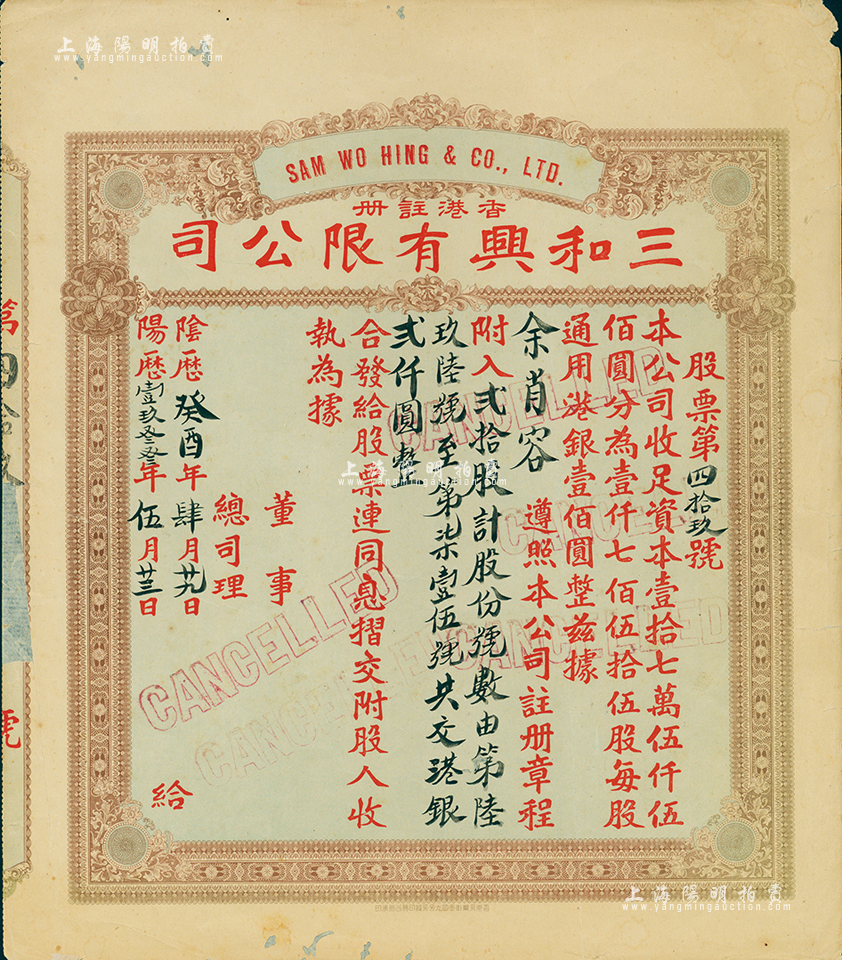 上海陽明拍賣
www.yangmingauction.com
SAM WO HING & CO., LTD.
香港註册
三和興有限公司
股票第四拾玖號
本公司收足資本壹拾七萬伍仟伍
佰圓分為壹仟七佰伍拾伍股每股
通用港銀壹佰圓整兹據
余肖容 遵照本公司註册章程
附入弍拾股計股份號數由第陸
玖陸號至第柒壹伍號共交港銀
弍仟圓整
合發給股票連同息摺交附股人收
執為據
董事
總司理
陰歷癸酉年肆月廿九日
陽歷壹玖叁叁年伍月廿三日
給
第四拾玖
號
CANCELLED
CANCELLED
CANCELLED
CANCELLED
CANCELLED
上海陽明拍賣
www.yangmingauction.com
上海陽明拍賣
www.yangmingauction.com